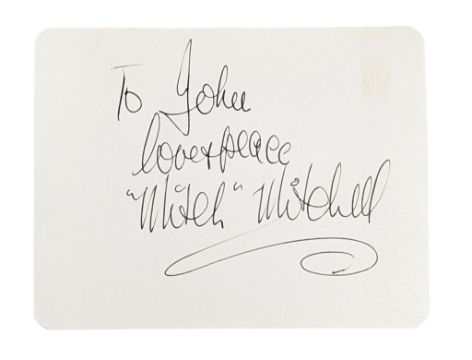 To John
love + peace
"Mitch" Mitchell